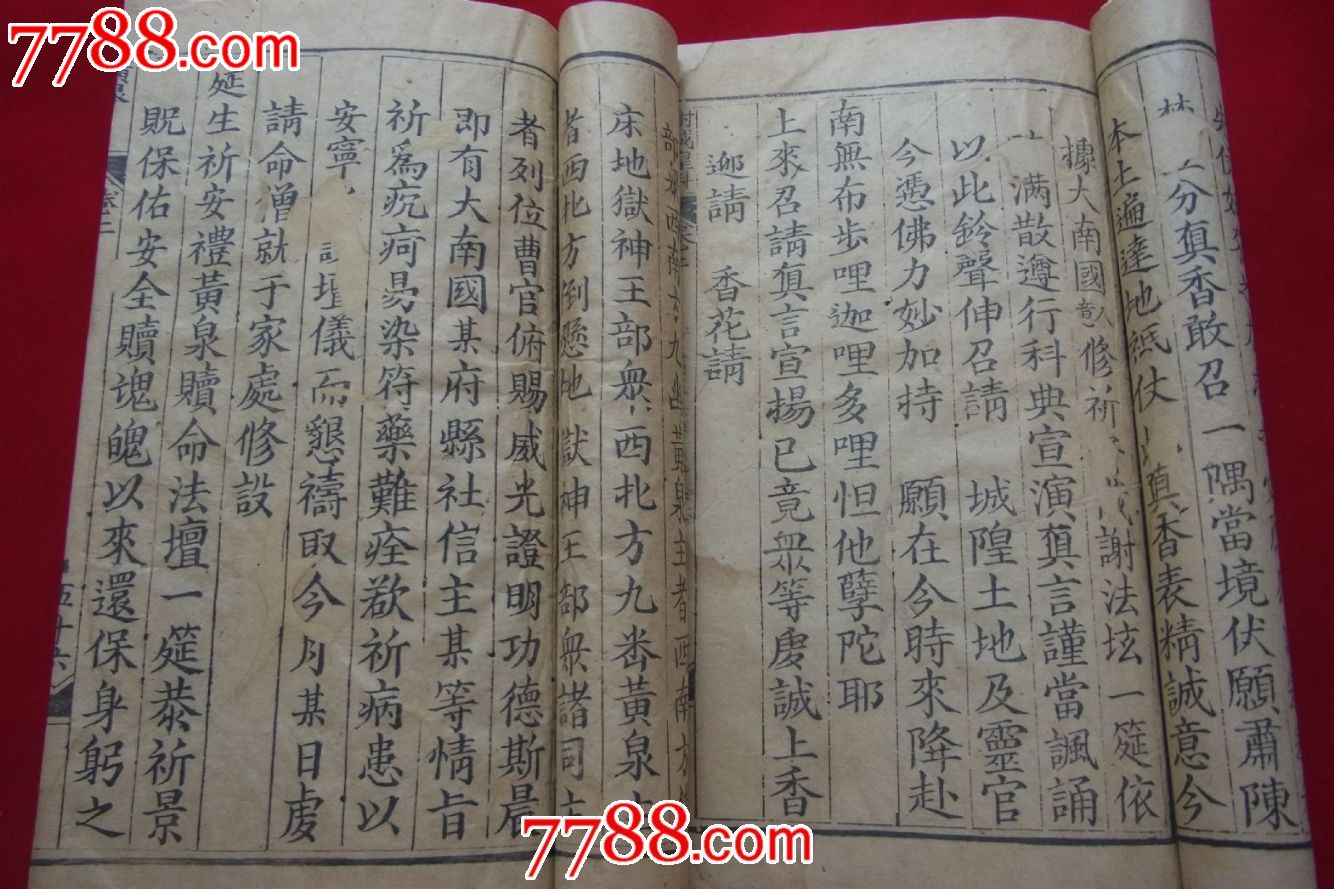 7788.com
7788.com
7788.com
分真香敢召一隅當境伏願肅陳
本土遍達地祇仗真香表精誠意今
據大南國修祈謝法坛一筵依
滿散遵行科典宣演真言謹當諷誦
以此鈴聲伸召請 城隍土地及靈官
今憑佛力妙加持 願在今時來降赴
南無布步哩迦哩多哩怛他孽陀耶
上來召請真言宣揚已竟眾等虔誠上香
迎請 香花請
卷二
部眾西南方九幽黃泉主者西南方
床地獄神王部眾西北方九畨黃泉
者西北方倒懸地獄神王部眾諸司主
者列位曹官俯賜威光證明功德斯晨
即有大南國某府縣社信主某等情旨
祈為疣疴易染符藥難痊欲祈病患以
安寧 壇儀而懇禱取今月某日虔
請命僧就于家處修設
延生祈安禮黃泉贖命法壇一筵恭祈景
貺保佑安全贖魂魄以來還保身躬之
卷二
五十六